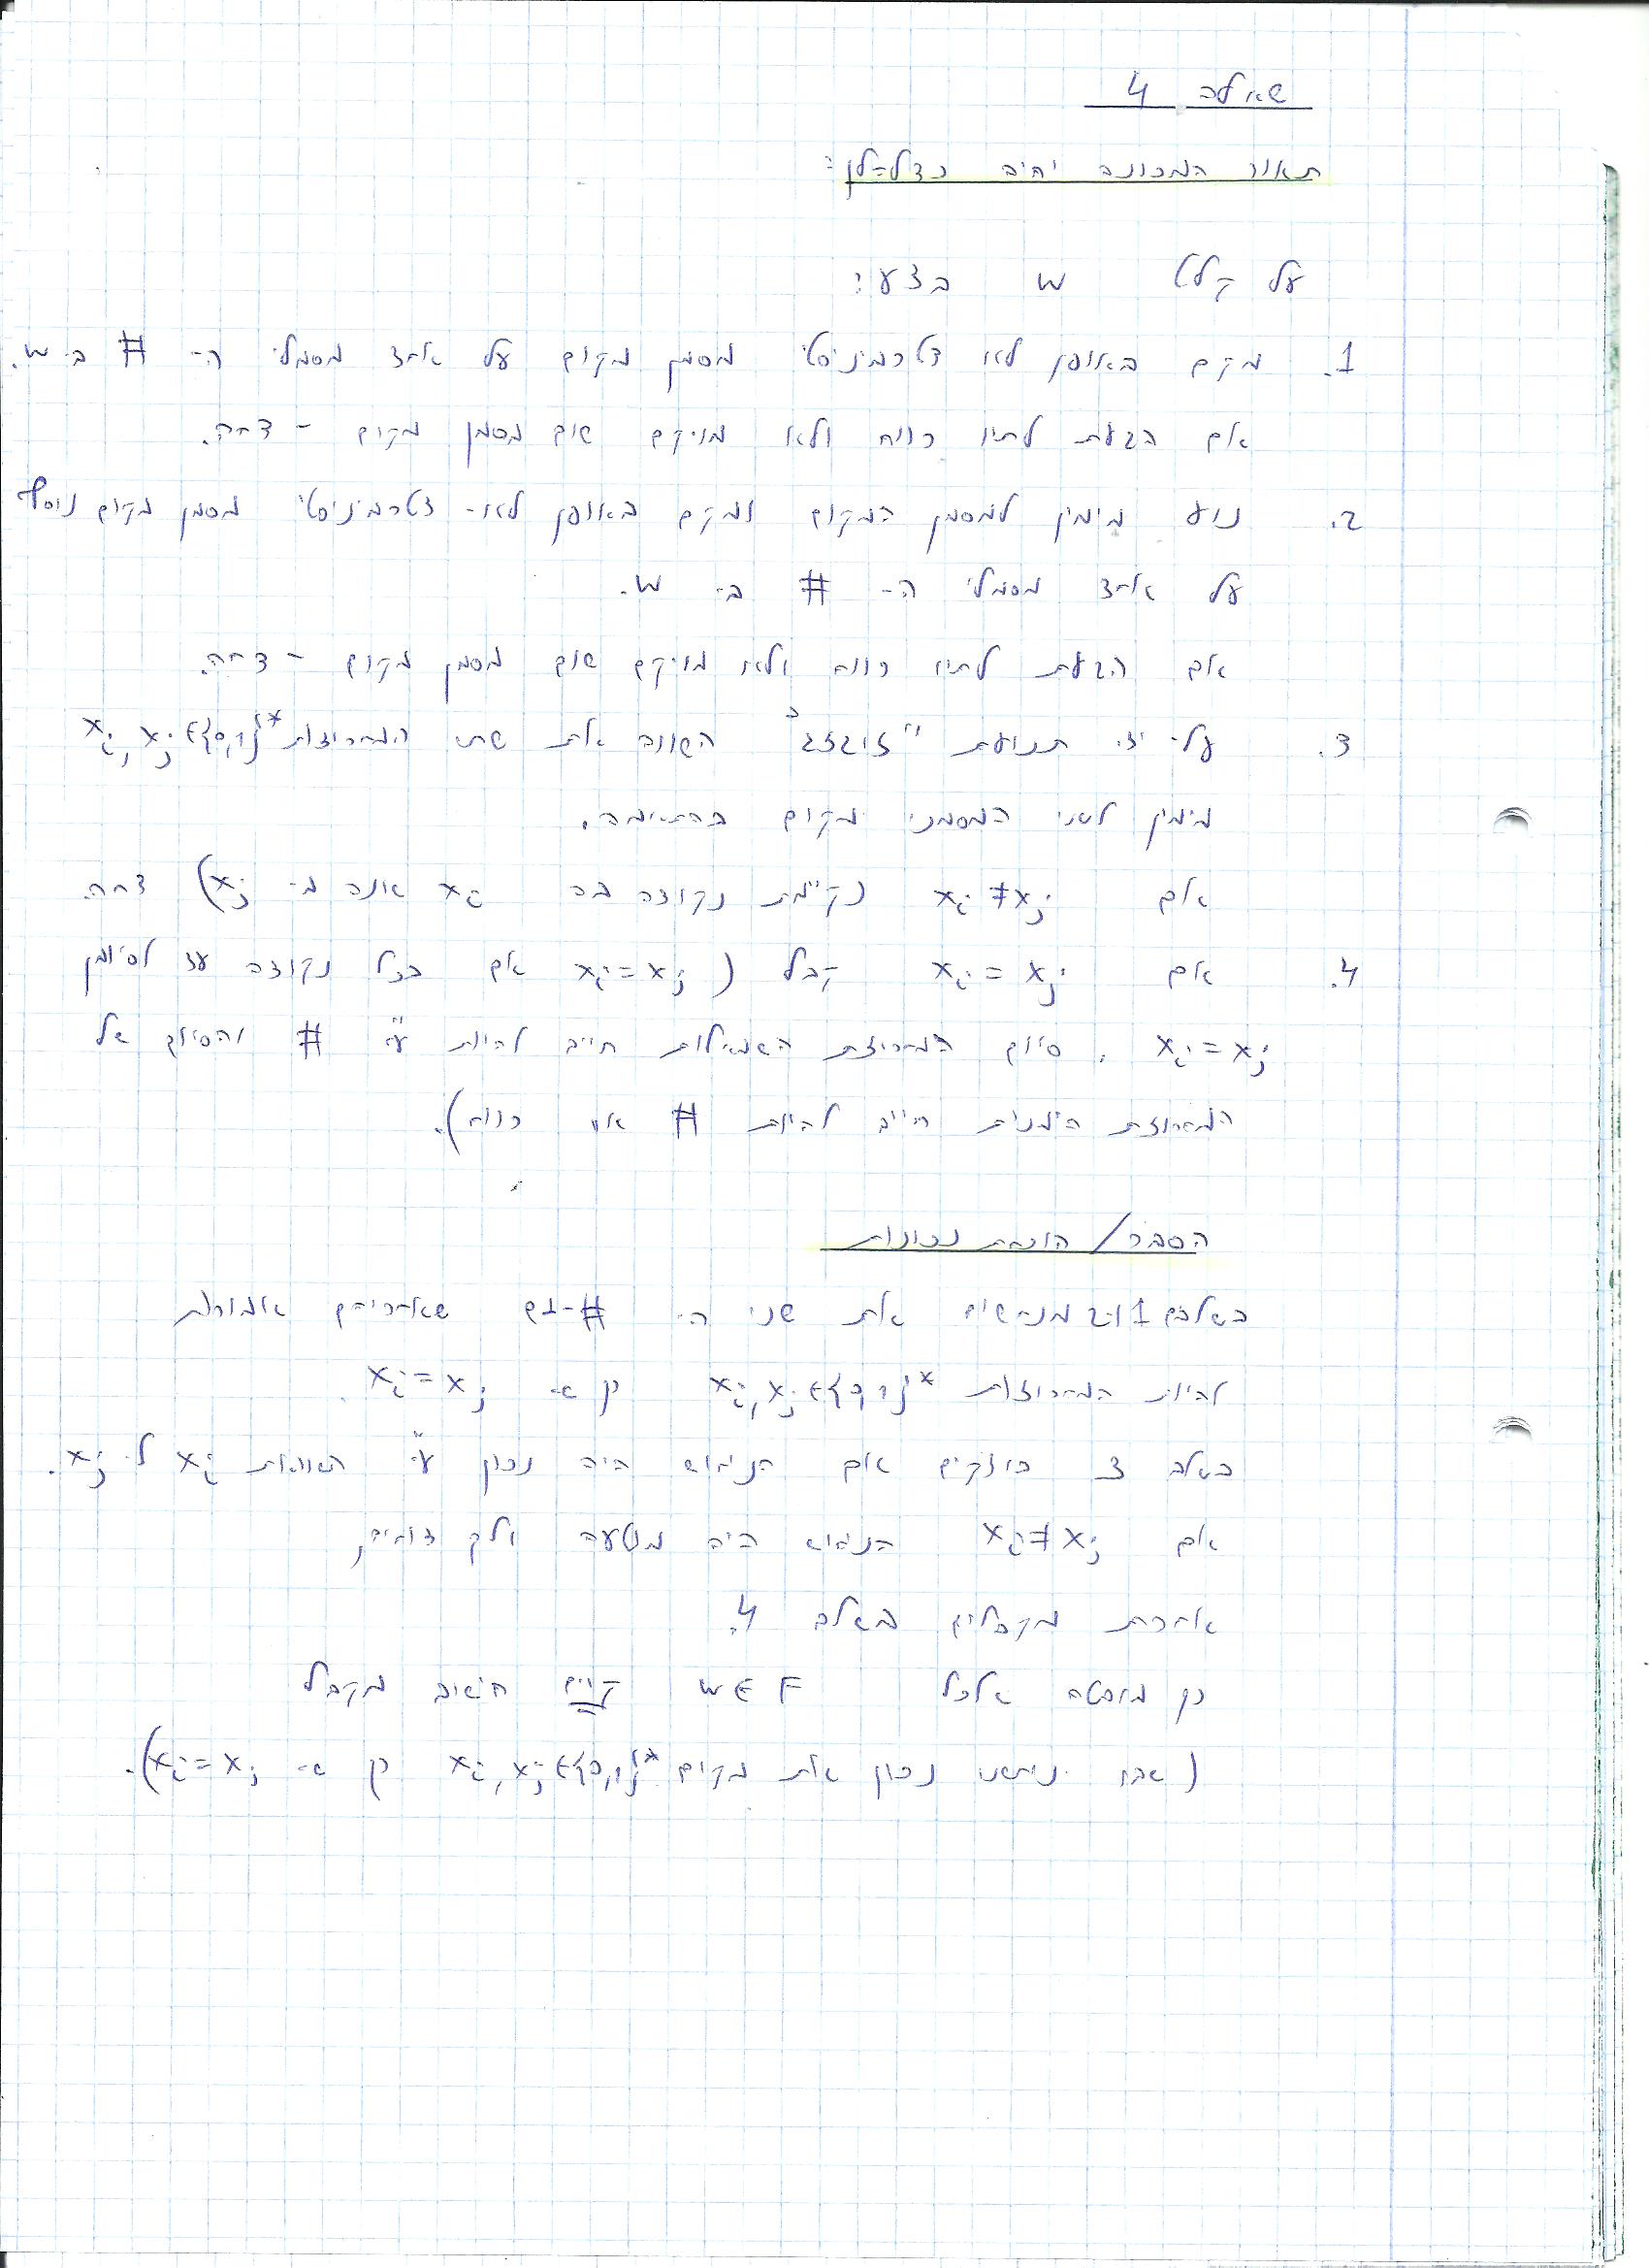 שאלה 4
תאור המכונה יהיה כדלהלן:
על קלט w בצע:
1. מקם באופן לא דטרמיניסטי מסמן מקום על אחד מסמלי ה- # ב- w.
אם הגעת לתיו רווח ולא מויקם שום מסמן מקום - דחה.
2. נוע מימין למסמן המקום ומקם באופן לא- דטרמיניסטי מסמן מקום נוסף
על אחד מסמלי ה- # ב- w.
אם הגעת לתיו רווח ולא מויקם שום מסמן מקום - דחה.
3. על- ידי תנועת "זיגזג" השווה את שתי המחרוזות xi, xj ∈ {0,1}*
מימין לשני המסמני מקום בהתאימה.
אם xi ≠ xj (קיימת נקודה בה xi שונה מ- xj) דחה.
4. אם xi = xj קבל (xi = xj אם בכל נקודה עד לסיומן
xi = xj, סיום המחרוזת השמאלית חייב להיות ע"י # והסיום של
המחרוזת הימנית חייב להיות # או רווח).
הסבר/ הוכחת נכונות
בשלבים 1 ו-2 מנחשים את שני ה- #-ים שאחריהם אמורות
להיות המחרוזות xi, xj ∈ {0,1}* כך ש- xi = xj.
בשלב 3 בודקים אם הניחוש היה נכון ע"י השוואת xi ל- xj.
אם xi ≠ xj הניחוש היה מוטעה ולכן דוחים,
אחרת מקבלים בשלב 4.
כך מובטח שלכל w ∈ F קיים חישוב מקבל
(שבו ניחשנו נכון את מקום xi, xj ∈ {0,1}* כך ש- xi = xj).